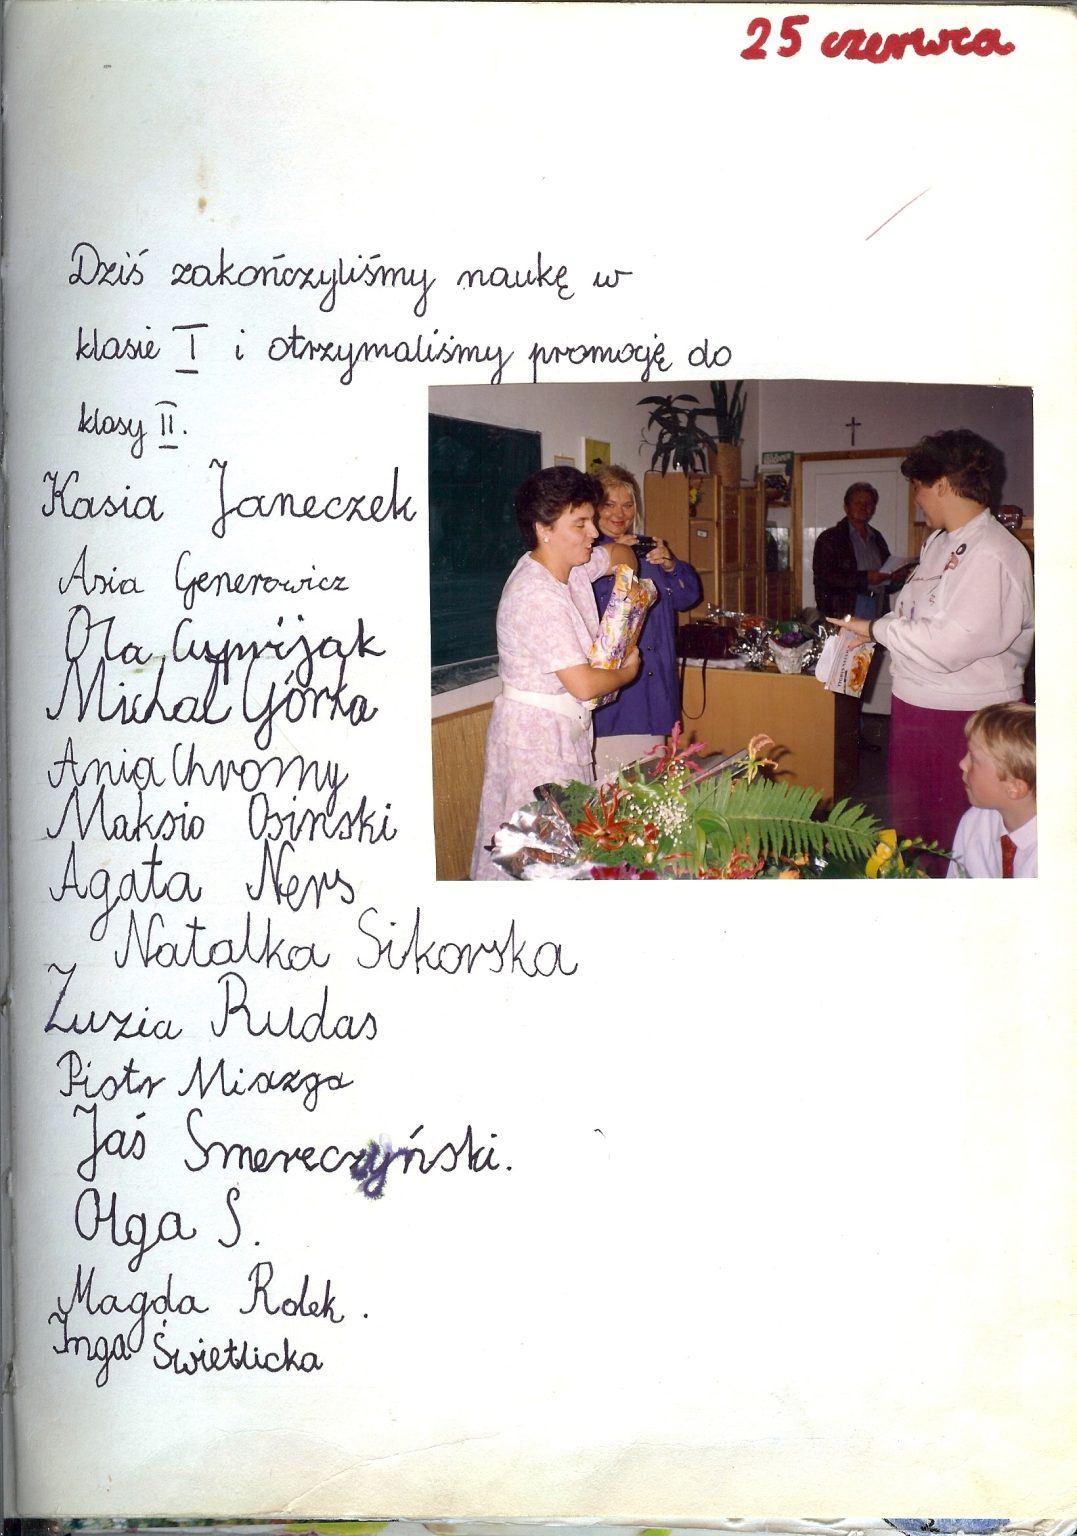 25 czerwca
Dziś zakończyliśmy naukę w
klasie I i otrzymaliśmy promocję do
klasy II.
Kasia Janeczek
Asia Generowicz
Ola Cupwijak
Michał Górka
Ania Chromy
Maksio Osinski
Agata Ners
Natalka Sikorska
Zuzia Rudas
Piotr Miazga
Jaś Smereczyński.
Olga S.
Magda Rolek.
Inga Świetlicka